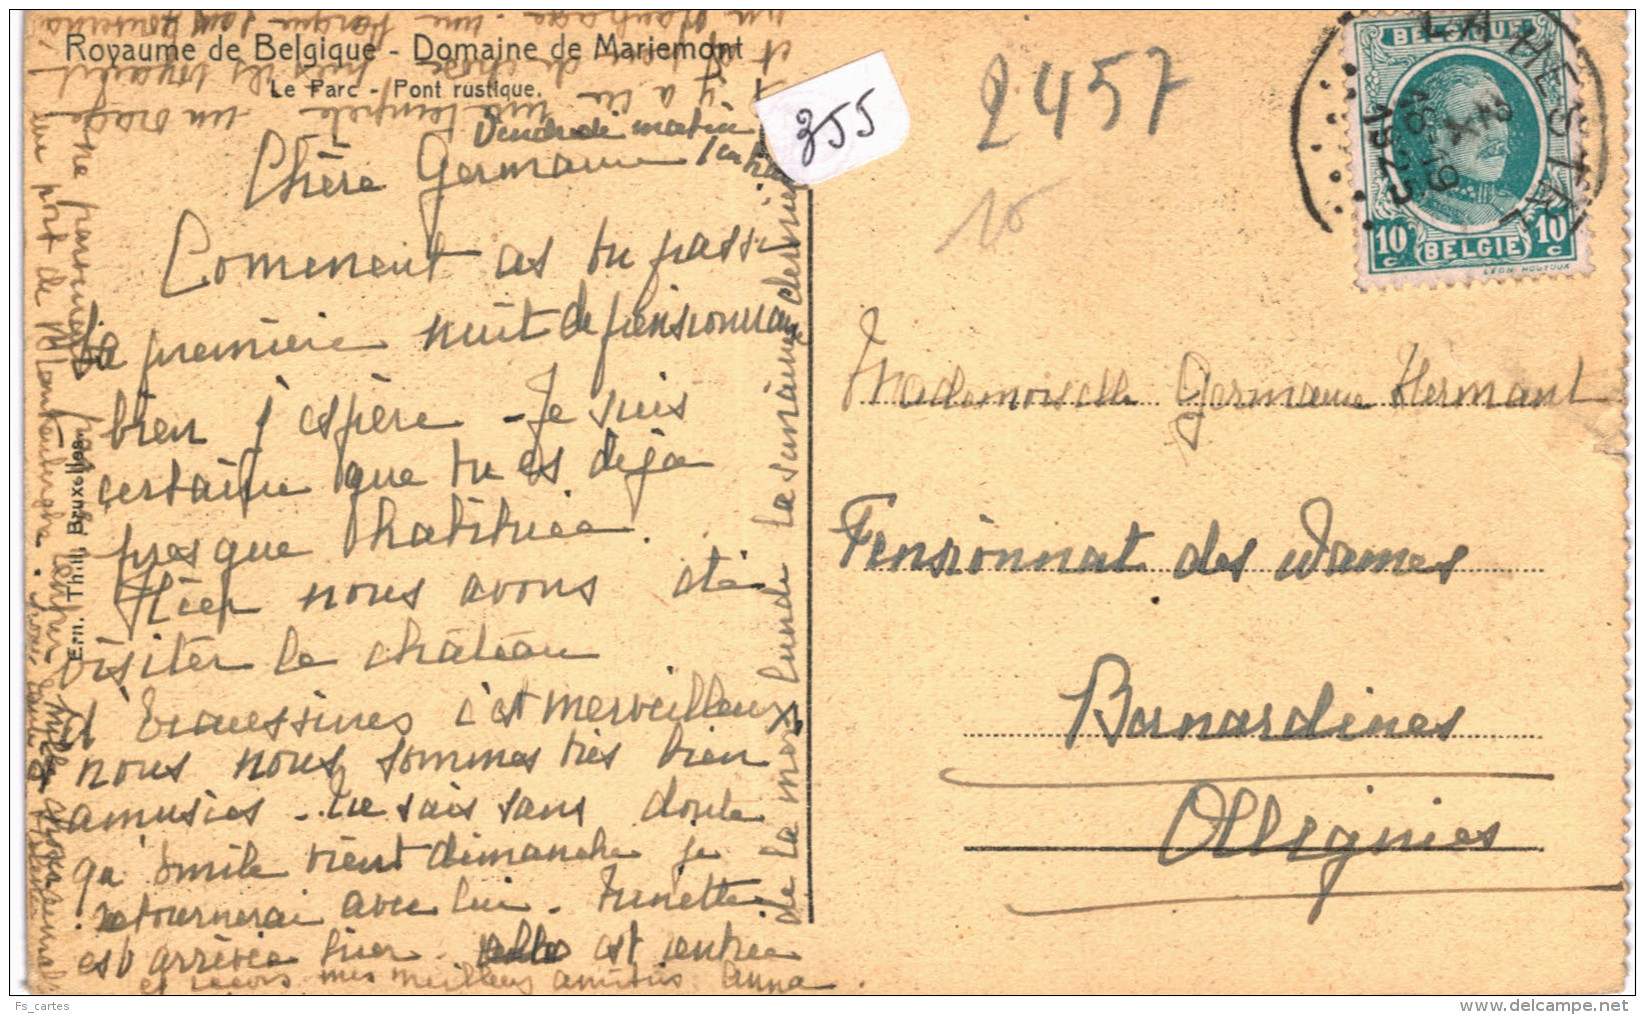 Royaume de Belgique - Domaine de Mariemont
Le Parc - Pont rustique.
Vendredi matin
Chère Germaine
Comment as tu passé
la première nuit de pensionnaire
bien j'espère - Je suis
certaine que tu es déja
presque habituée.
Hier nous avons été
visiter le château
d'Ecaussines c'est merveilleux
nous nous sommes très bien
amusées - Tu sais sans doute
qu'Emile vient dimanche je
retournerai avec lui. Ninette
est arrivée hier. est rentrée
de la mer lundi la semaine dernière
et reçois mes meilleurs amitiés Anna.
un orage
Ern. Thill, Bruxelles
355
2457
10
LA HESTRE
18-19
1925
BELGIQUE
10 c
BELGIE
10 c
LÉON HOUYOUX
Mademoiselle Germaine Hermant
Pensionnat des Dames
Bernardines
Ollignies
Fs_cartes
www.delcampe.net